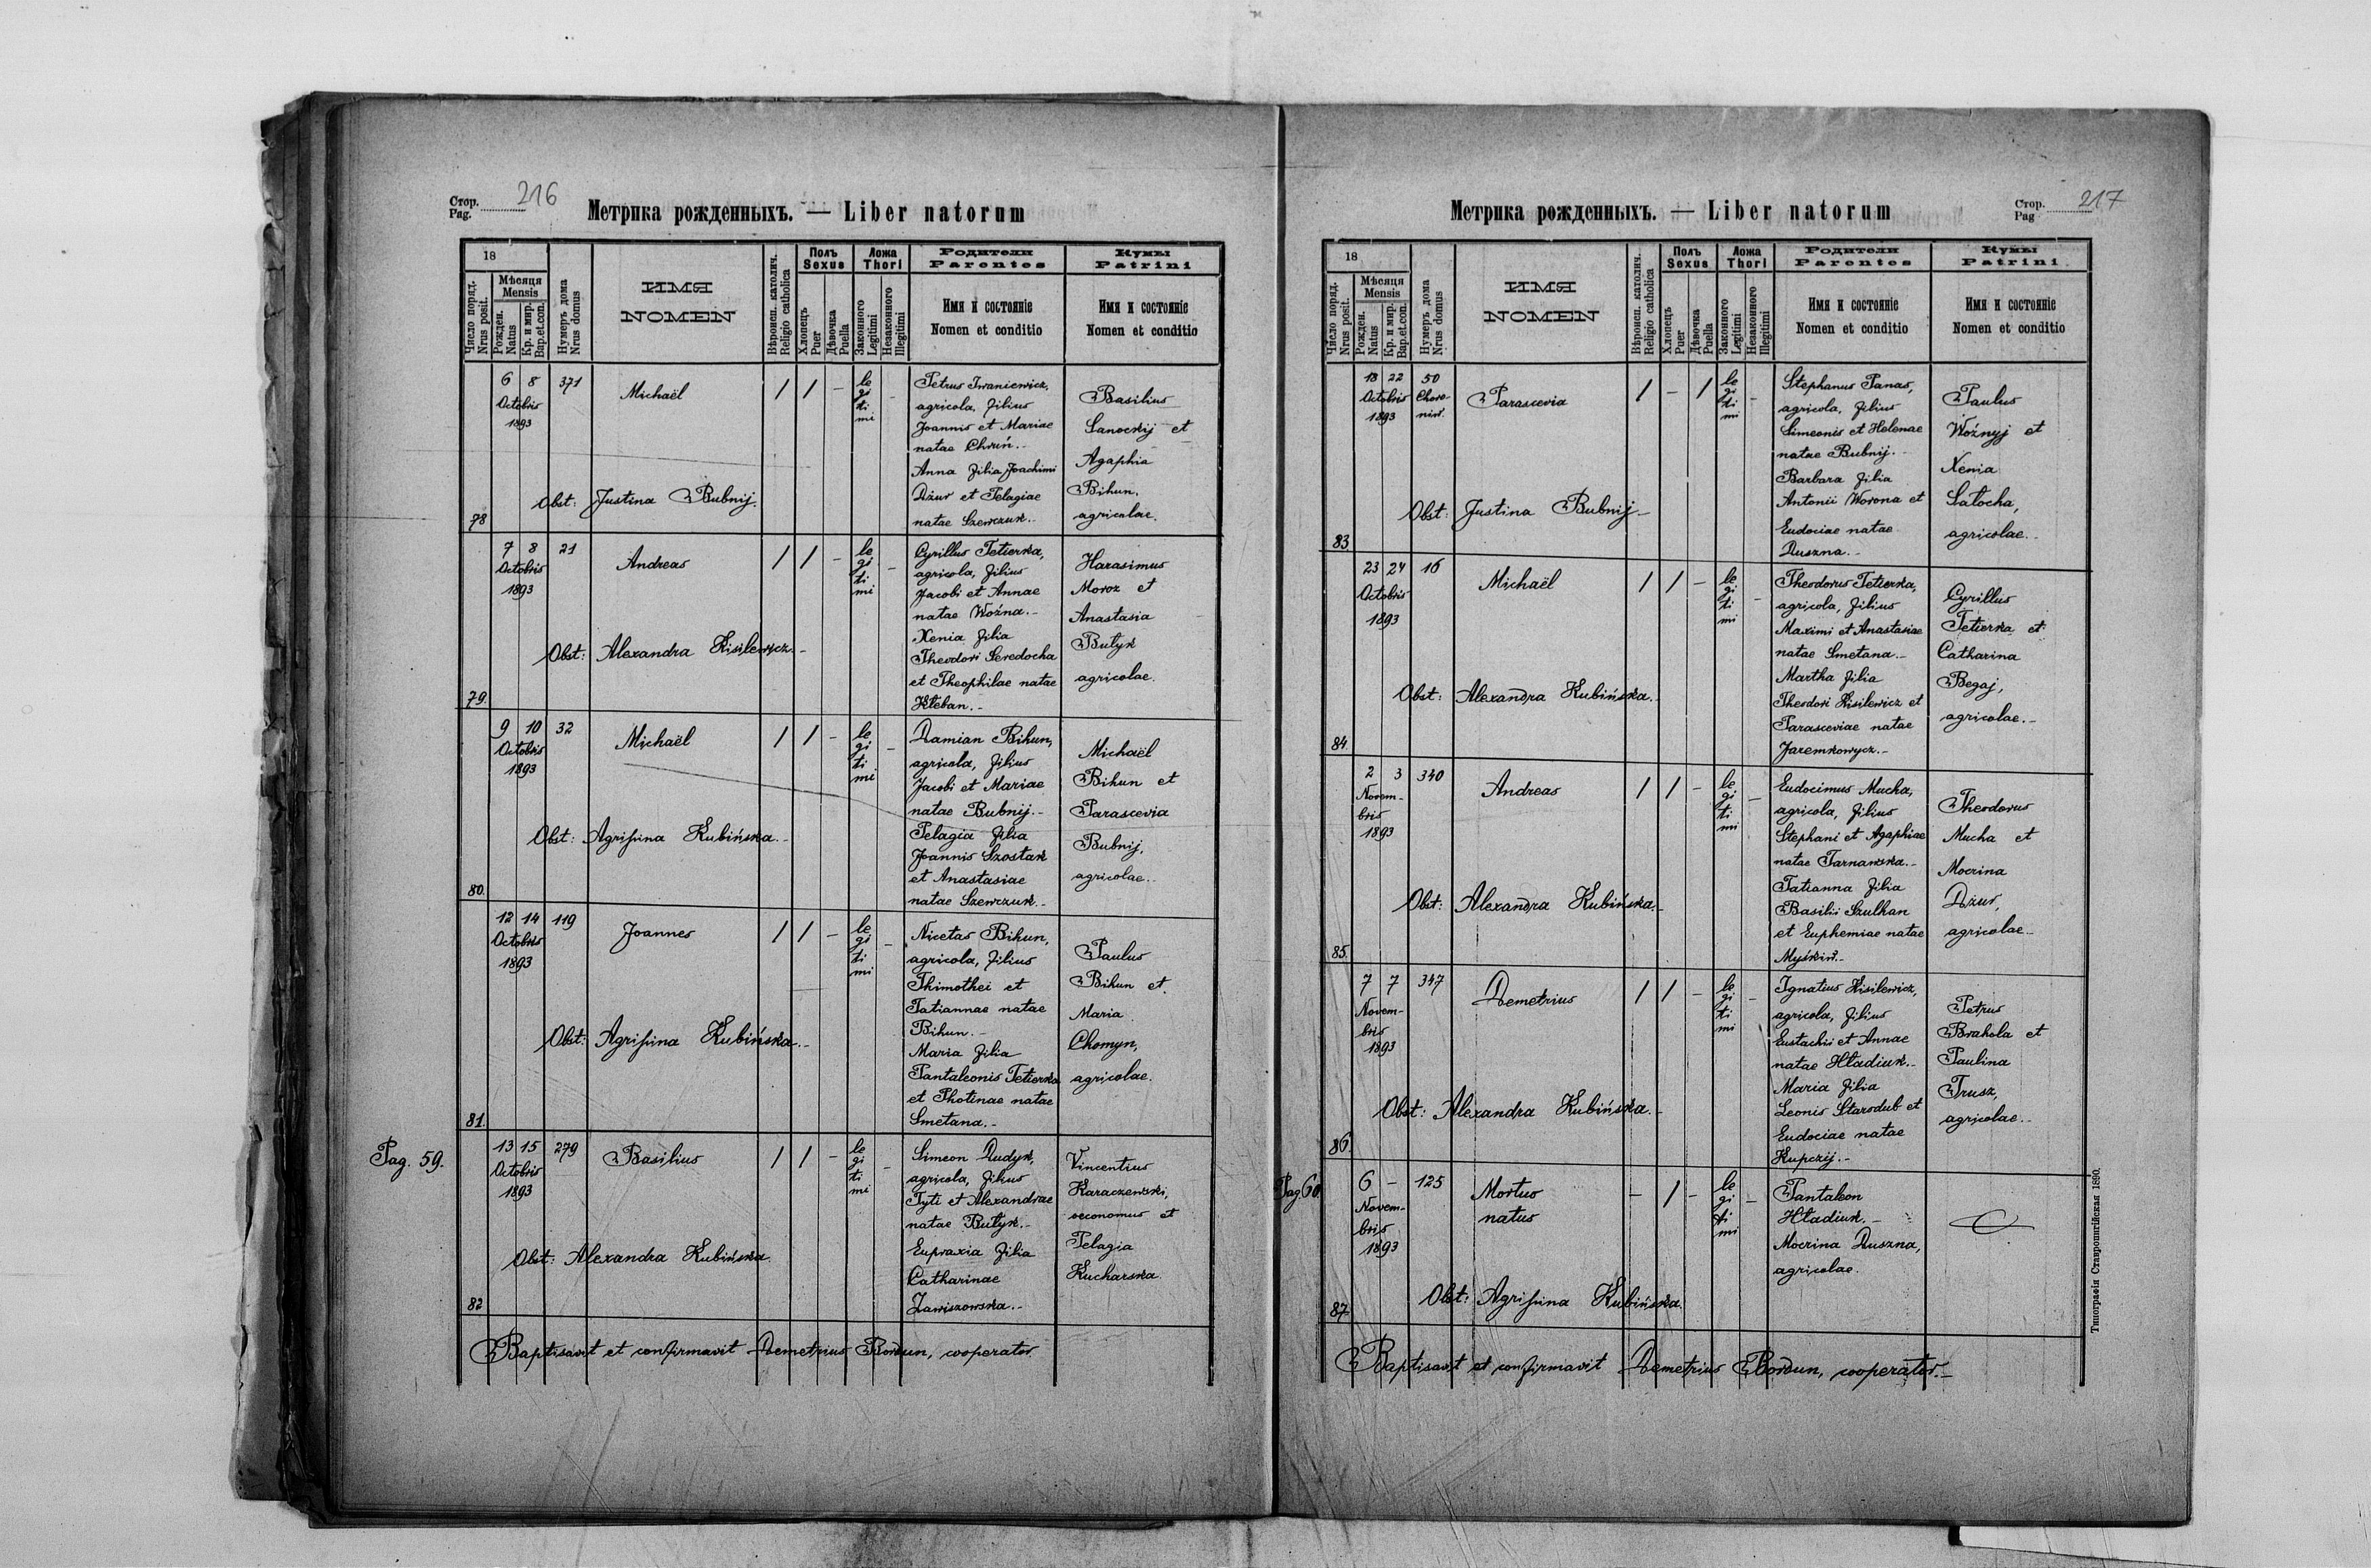 Стор.
Pag. 216
Метрика рожденныхъ. — Liber natorum
18
Число поряд.
Nrus posit.
Мѣсяця
Mensis
Рожден.
Natus
Кр. и мир.
Bap. et. con.
Нумеръ дома
Nrus domus
ИМЯ
NOMEN
Вѣроисп. католич.
Religio catholica
Полъ
Sexus
Хлопецъ
Puer
Дѣвочка
Puella
Ложа
Thori
Законного
Legitimi
Незаконного
Illegitimi
Родители
Parentes
Имя и состоянie
Nomen et conditio
Кумы
Patrini
Имя и состоянie
Nomen et conditio
78
6 8
Octobris
1893
371
Michaël
Obst: Justina Bubnij.
/ / -
le
gi
ti
mi
-
Petrus Iwaniewicz,
agricola, filius
Joannis et Mariae
natae Chruń.-
Anna filia Joachimi
Dżur et Pelagiae
natae Szewczuk.-
Basilius
Sanockij et
Agaphia
Bihun,
agricolae.
79.
7 8
Octobris
1893
21
Andreas
Obst: Alexandra Kisilewycz.-
/ / -
le
gi
ti
mi
-
Cyrillus Tetierka,
agricola, filius
Jacobi et Annae
natae Woźna.-
Xenia filia
Theodori Seredocha
et Theophilae natae
Kłeban.-
Harasimus
Moroz et
Anastasia
Bułyk
agricolae.
80.
9 10
Octobris
1893
32
Michaël
Obst: Agrifina Kubińska.-
/ / -
le
gi
ti
mi
-
Damian Bihun,
agricola, filius
Jacobi et Mariae
natae Bubnij.-
Pelagia filia
Joannis Szostak
et Anastasiae
natae Szewczuk.-
Michaël
Bihun et
Parascevia
Bubnij,
agricolae.-
81.
12 14
Octobris
1893
119
Joannes
Obst: Agrifina Kubińska.-
/ / -
le
gi
ti
mi
-
Nicetas Bihun,
agricola, filius
Thimothei et
Tatiannae natae
Bihun.-
Maria filia
Pantaleonis Tetierka
et Photinae natae
Smetana.-
Paulus
Bihun et
Maria
Chomyn,
agricolae.
Pag. 59.
82
13 15
Octobris
1893
279
Basilius
Obst: Alexandra Kubińska.
/ / -
le
gi
ti
mi
-
Simeon Dudyk,
agricola, filius
Tyti et Alexandrae
natae Bułyk.-
Eupraxia filia
Catharinae
Zawiszowska.-
Vincentius
Karaczewski,
oeconomus et
Pelagia
Kucharska.
Baptisavit et confirmavit Demetrius Bordun, cooperator.
Стор.
Pag 217
Метрика рожденныхъ. — Liber natorum
18
Число поряд.
Nrus posit.
Мѣсяця
Mensis
Рожден.
Natus
Кр. и мир.
Bap. et. con.
Нумеръ дома
Nrus domus
ИМЯ
NOMEN
Вѣроисп. католич.
Religio catholica
Полъ
Sexus
Хлопецъ
Puer
Дѣвочка
Puella
Ложа
Thori
Законного
Legitimi
Незаконного
Illegitimi
Родители
Parentes
Имя и состоянie
Nomen et conditio
Кумы
Patrini
Имя и состоянie
Nomen et conditio
83
18 22
Octobris
1893
50
Choro-
niw.
Parascevia
Obst: Justina Bubnij.-
/ - /
le
gi
ti
mi
-
Stephanus Panas,
agricola, filius
Simeonis et Helenae
natae Bubnij.-
Barbara filia
Antonii Worona et
Eudociae natae
Duszna.-
Paulus
Woźnyj et
Xenia
Sałocha,
agricolae.-
84.
23 24
Octobris
1893
16
Michaël
Obst: Alexandra Kubińska.-
/ / -
le
gi
ti
mi
-
Theodorus Tetierka,
agricola, filius
Maximi et Anastasiae
natae Smetana.-
Martha filia
Theodori Kisilewicz et
Parasceviae natae
Jaremkowycz.-
Cyrillus
Tetierka et
Catharina
Begaj,
agricolae.-
85.
2 3
Novem-
bris
1893
340
Andreas
Obst: Alexandra Kubińska.-
/ / -
le
gi
ti
mi
-
Eudocimus Mucha,
agricola, filius
Stephani et Agaphiae
natae Tarnawska.-
Tatianna filia
Basilii Szulhan
et Euphemiae natae
Myśkiw.-
Theodorus
Mucha et
Mocrina
Dżur,
agricolae.-
86.
7 7
Novem-
bris
1893
347
Demetrius
Obst: Alexandra Kubińska.-
/ / -
le
gi
ti
mi
-
Ignatius Kisilewicz,
agricola, filius
Eustachii et Annae
natae Hładiuk.-
Maria filia
Leonis Starodub et
Eudociae natae
Kupczij.-
Petrus
Brahola et
Paulina
Trusz,
agricolae.-
Pag. 60.
87
6 -
Novem-
bris
1893
125
Mortuo
natus
Obst: Agrifina Kubińska.
- / -
le
gi
ti
mi
-
Pantaleon
Hładiuk.-
Mocrina Duszna,
agricolae.
Baptisavit et confirmavit Demetrius Bordun, cooperator.-
Типографія Ставропигійская 1890.